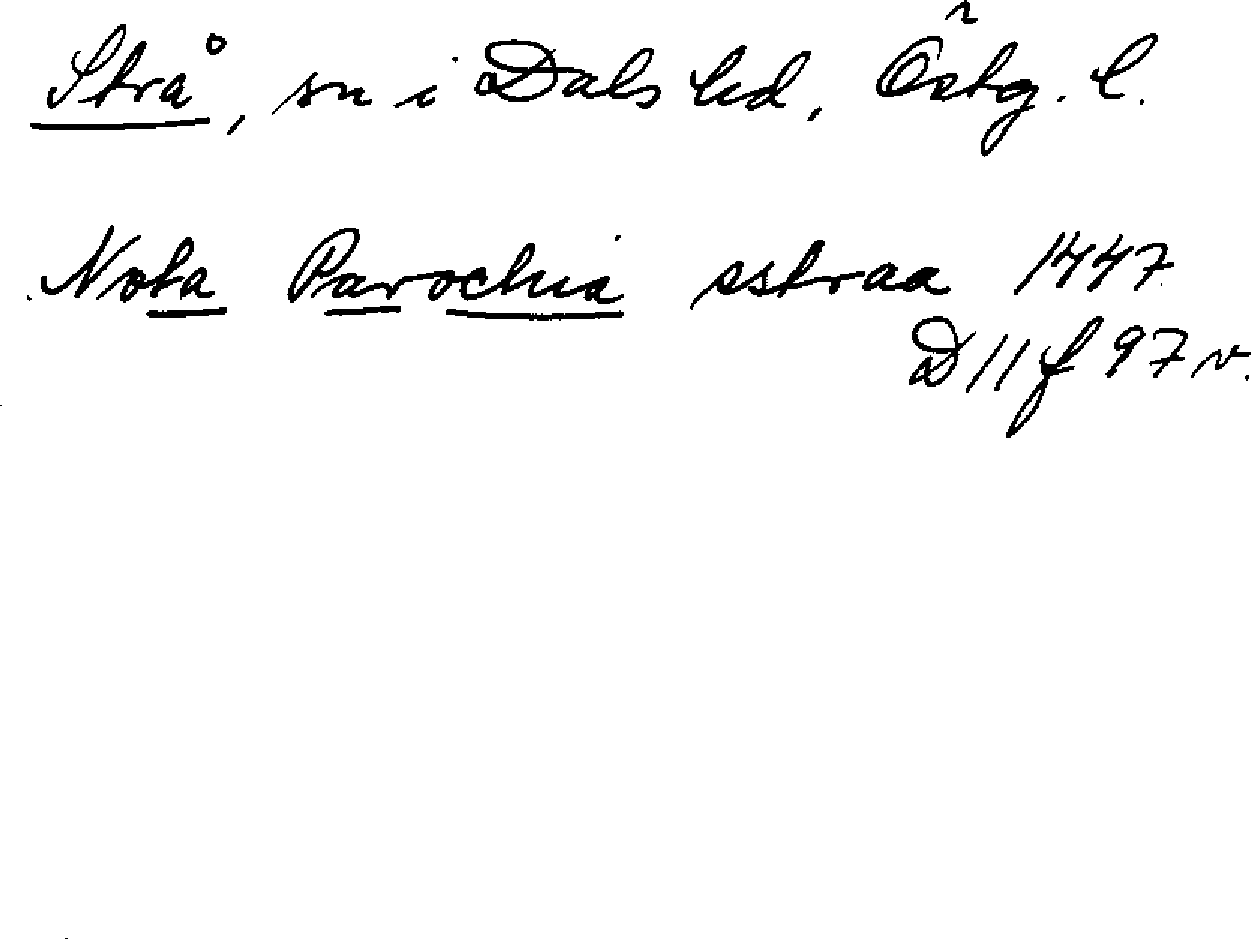 Strå, sn i Dals hd, Östg. l.
Nota Parochia sstraa 1447
D 11 f 97 v.